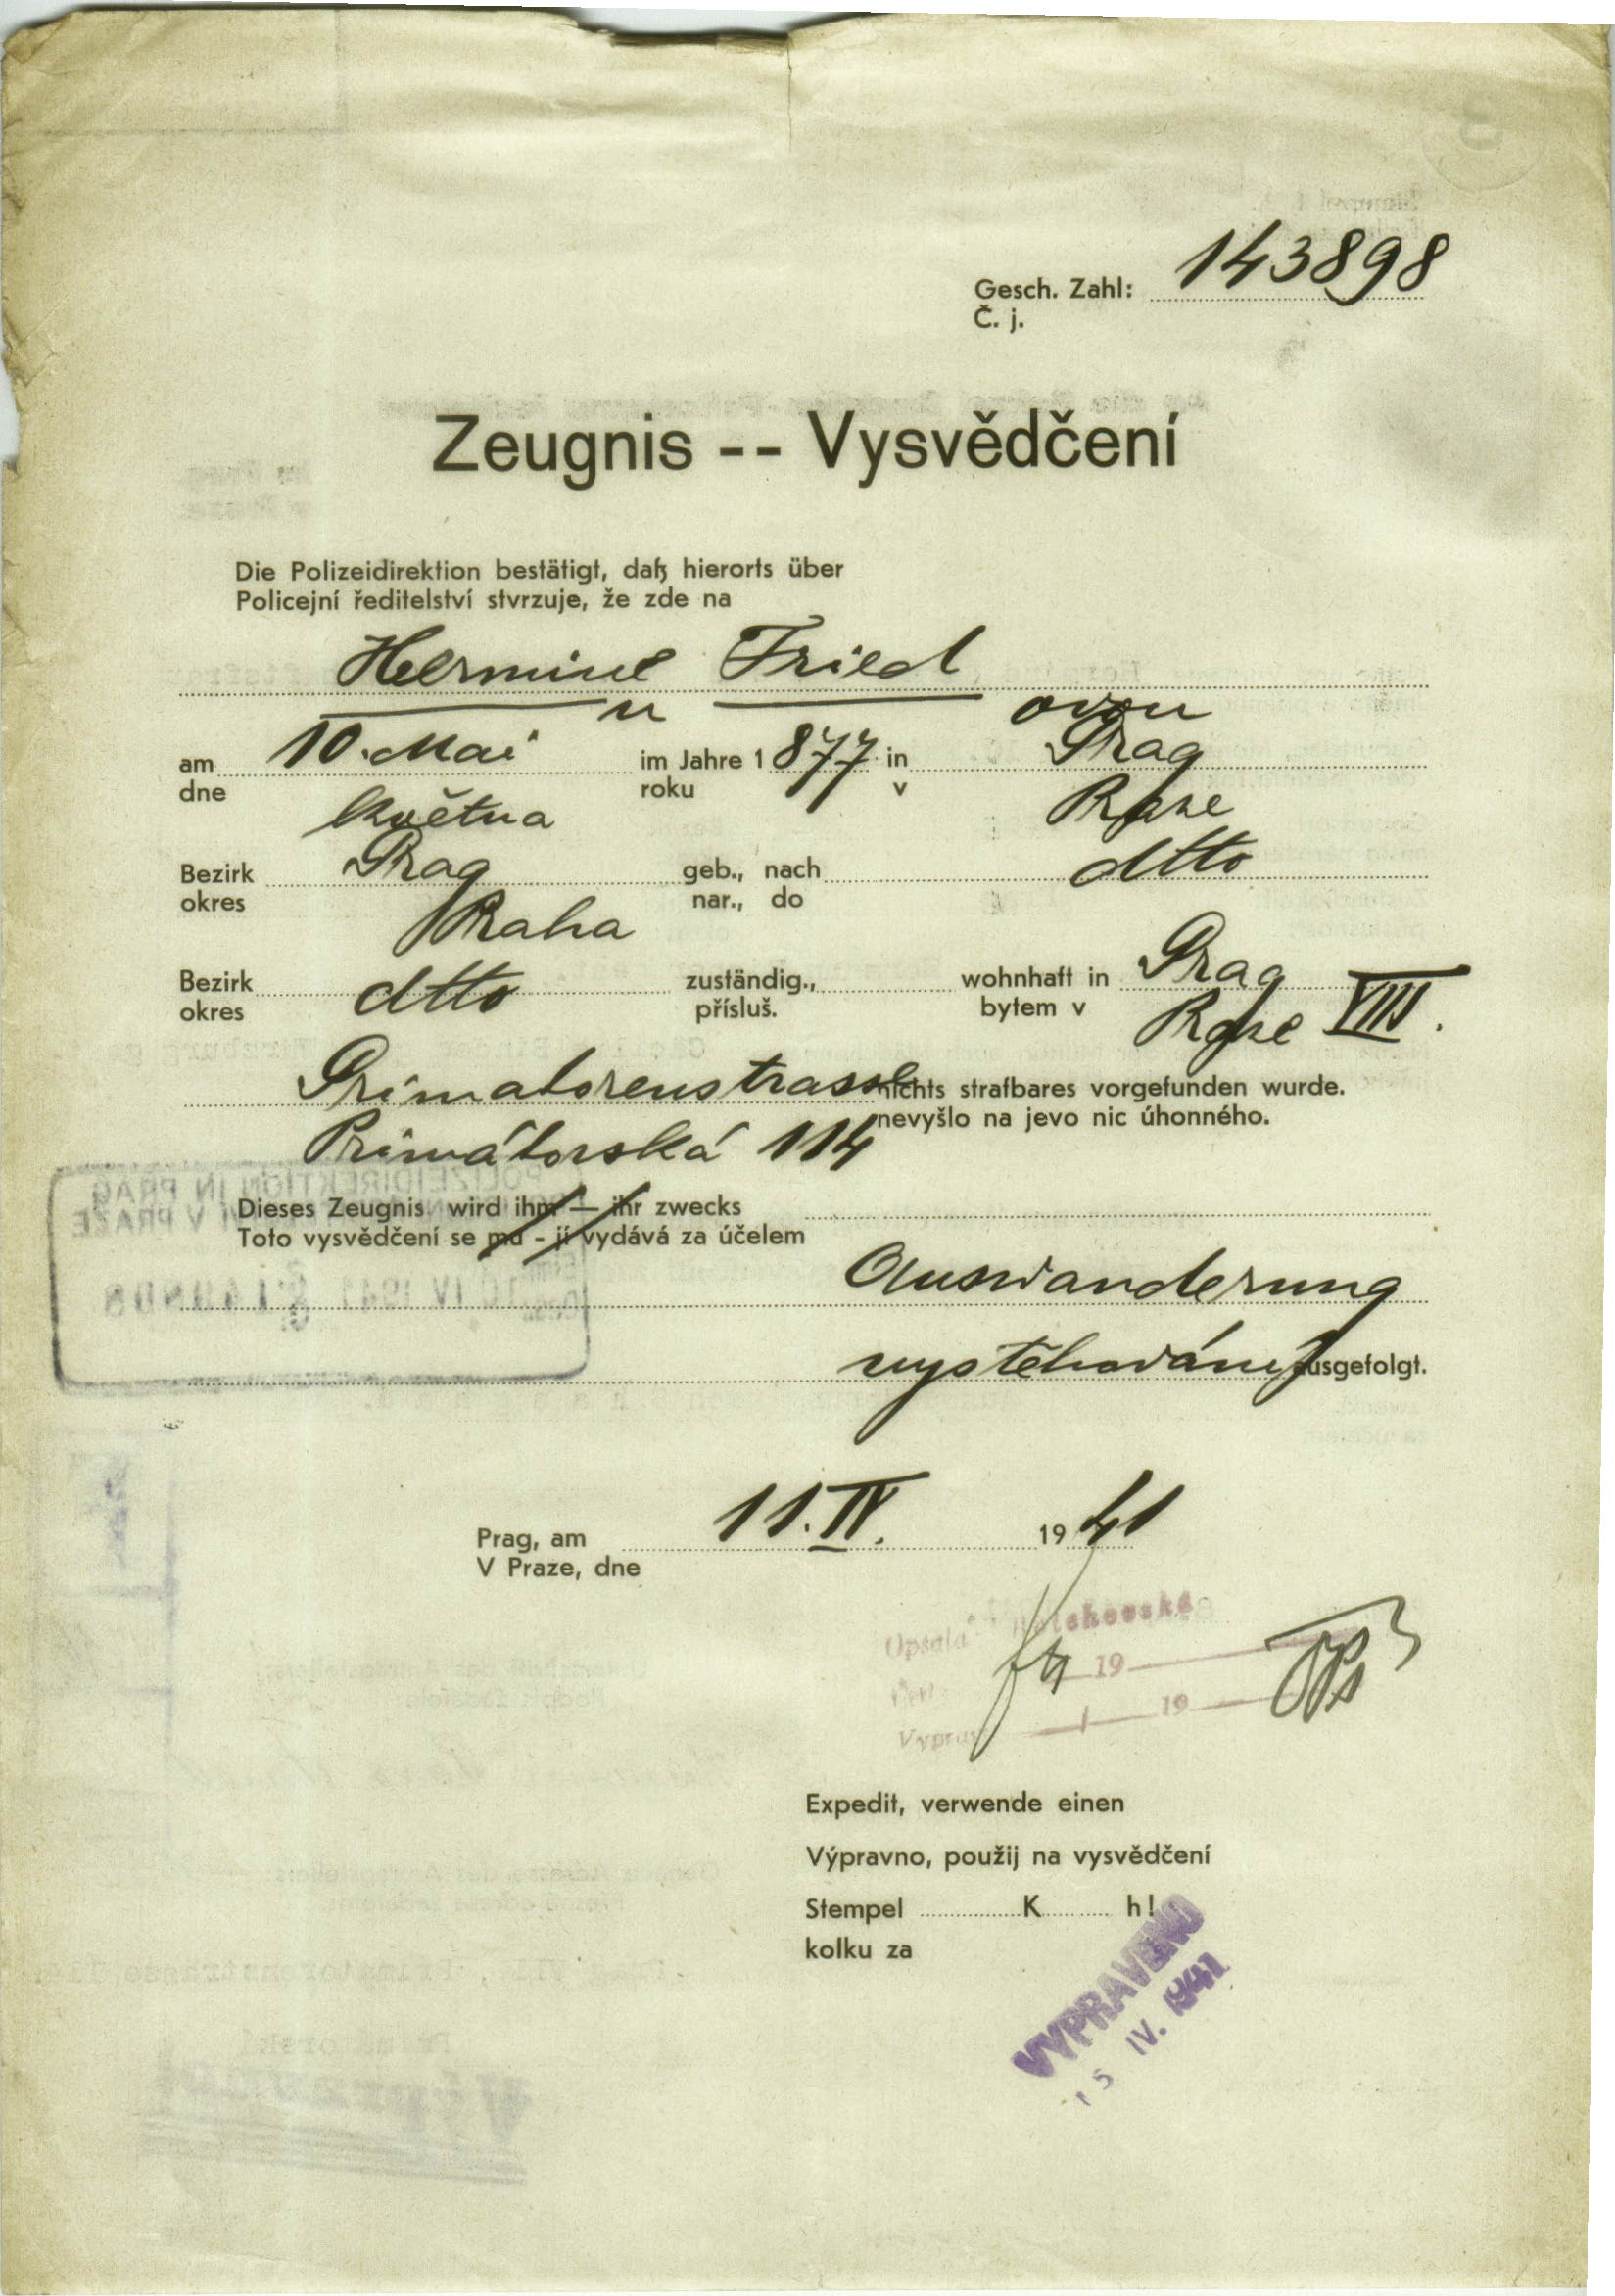 Gesch. Zahl: 143898
Č. j.
Zeugnis -- Vysvědčení
Die Polizeidirektion bestätigt, daß hierorts über
Policejní ředitelství stvrzuje, že zde na
Hermine Fried
u ovou
am 10. Mai im Jahre 1877 in Prag
dne května roku v Praze
Bezirk Prag geb., nach dtto
okres Praha nar., do
Bezirk dtto zuständig., wohnhaft in Prag
okres přísluš. bytem v Praze VIII.
Primatorenstrasse nichts strafbares vorgefunden wurde.
Primátorská 114 nevyšlo na jevo nic úhonného.
POLIZEIDIREKTION IN PRAG
V PRAZE
Dieses Zeugnis wird ihm — ihr zwecks
Toto vysvědčení se mu - jí vydává za účelem
10 IV 1941
Auswanderung
vystěhování ausgefolgt.
Prag, am 11. IV. 1941
V Praze, dne
Opsala
19
Vyprav 19
Expedit, verwende einen
Výpravno, použij na vysvědčení
Stempel K h!
kolku za
VYPRAVENO
15 IV. 1941